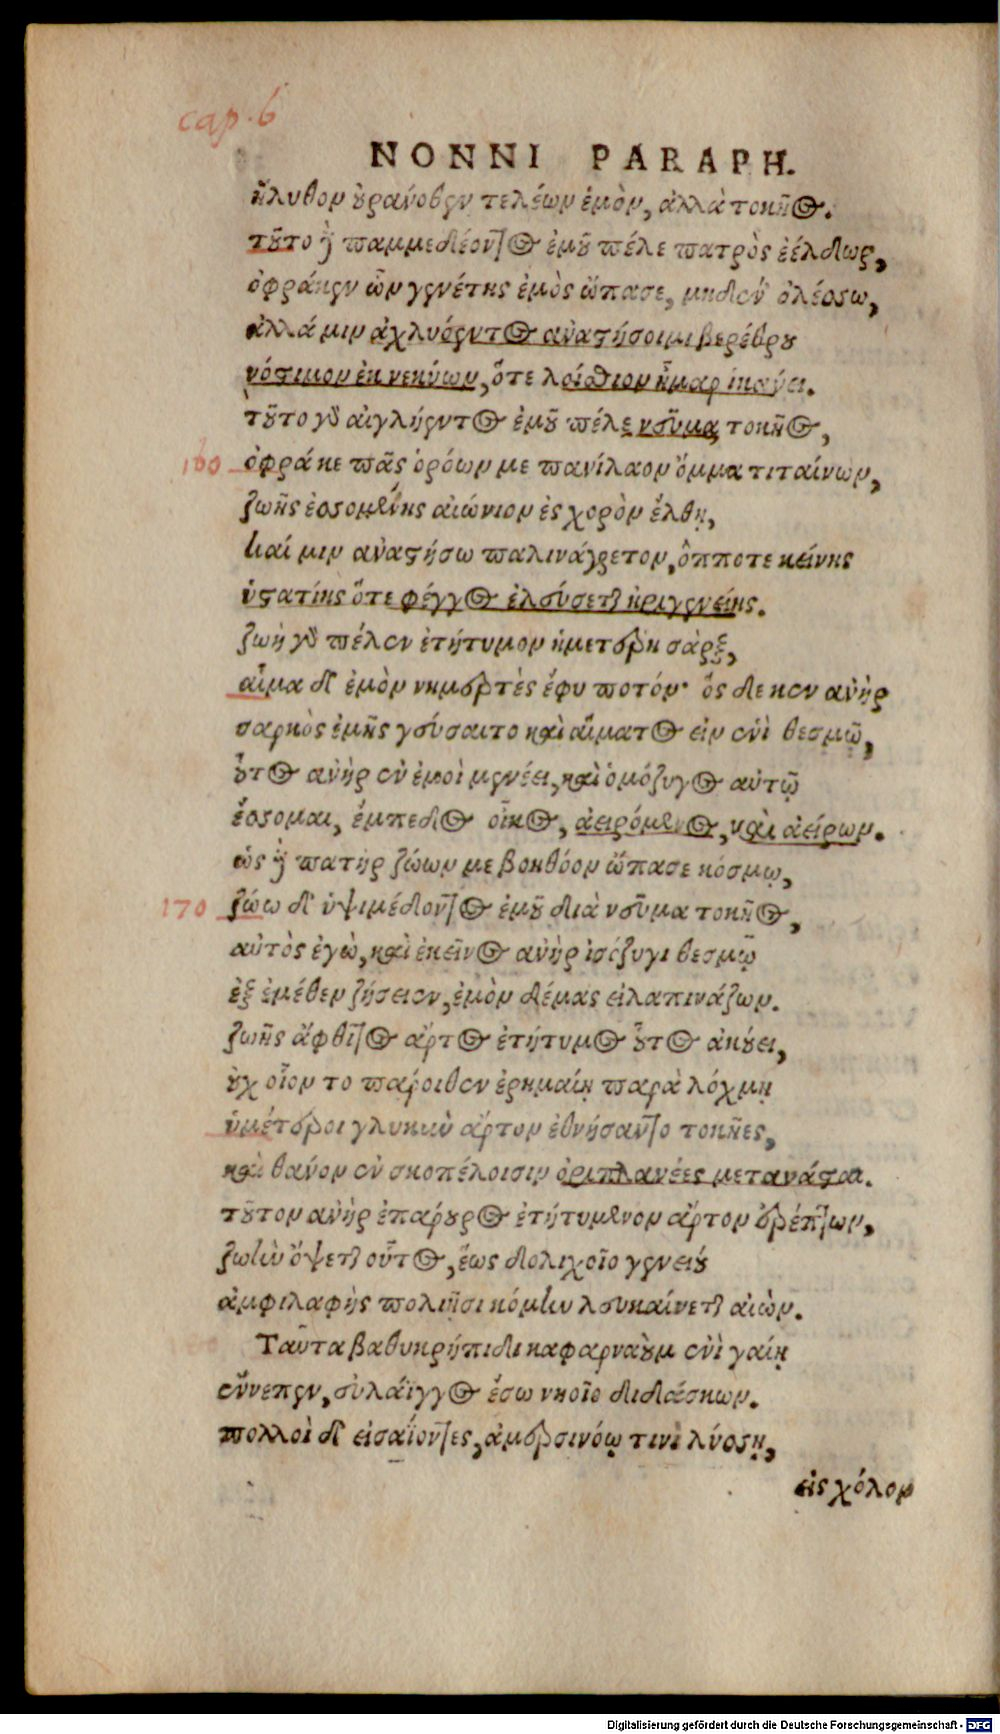 cap. 6
NONNI PARAPH.
ἤλυθον οὐρανόθεν τελέων ἐμὸν, ἀλλὰ τοκῆος.
τοῦτο γὰρ παμμεδέοντος ἐμοῦ πέλε πατρὸς ἐέλδωρ,
ὄφρά κεν ὧν γενέτης ἐμὸς ὤπασε, μηδὲν ὀλέσσω,
ἀλλά μιν ἀχλυόεντος ἀναστήσοιμι βερέθρου
νόστιμον ἐκ νεκύων, ὅτε λοίσθιον ἦμαρ ἱκάνει.
τοῦτο γὰρ αἰγλήεντος ἐμοῦ πέλε νεῦμα τοκῆος,
160 ὄφρά κε πᾶς ὁρόων με πανίλαον ὄμμα τιταίνων,
ζωῆς ἐσσομένης αἰώνιον ἐς χορὸν ἔλθῃ,
καί μιν ἀναστήσω παλινάγρετον, ὁππότε κείνης
ὑστατίης ὅτε φέγγος ἐλεύσεται ἠριγενείης.
ζωὴ γὰρ πέλεν ἐτήτυμον ἡμετέρη σὰρξ,
αἷμα δ' ἐμὸν νημερτὲς ἔφυ ποτόν· ὅς δε κεν ἀνὴρ
σαρκὸς ἐμῆς γεύσαιτο καὶ αἵματος εἰν ἑνὶ θεσμῷ,
οὗτος ἀνὴρ ἐν ἐμοὶ μενέει, καὶ ὁμόζυγος αὐτῷ
ἔσσομαι, ἔμπεδος οἶκος, ἀειρόμενος, καὶ ἀείρων.
ὡς γὰρ πατὴρ ζώων με βοηθόον ὤπασε κόσμῳ,
170 ζώω δ' ὑψιμέδοντος ἐμοῦ διὰ νεῦμα τοκῆος,
αὐτὸς ἐγὼ, καὶ ἐκεῖνος ἀνὴρ ἰσόζυγι θεσμῷ
ἐξ ἐμέθεν ζήσειεν, ἐμὸν δέμας εἰλαπινάζων.
ζωῆς ἄφθιτος ἄρτος ἐτήτυμος οὗτος ἀκούει,
οὐχ οἷον τὸ πάροιθεν ἐρημαίῃ παρὰ λόχμῃ
ὑμέτεροι γλυκὺν ἄρτον ἐθνήσαντο τοκῆες,
καὶ θάνον ἐν σκοπέλοισιν ὀριπλανέες μετανάσται.
τοῦτον ἀνὴρ ἐπάρουρος ἐτήτυμενον ἄρτον ἐρέπτων,
ζωὴν ὄψεται οὗτος, ἕως δολιχοῖο γενείου
ἀμφιλαφὴς πολιῇσι κόμην λευκαίνεται αἰών.
Ταῦτα βαθυκρήπιδι καφαρναοὺμ ἐνὶ γαίῃ
ἔννεπεν, εὐλάϊγγος ἔσω νηοῖο διδάσκων.
πολλοὶ δ' εἰσαΐοντες, ἀμερσινόῳ τινὶ λύσσῃ,
εἰς χόλον
Digitalisierung gefördert durch die Deutsche Forschungsgemeinschaft - DFG